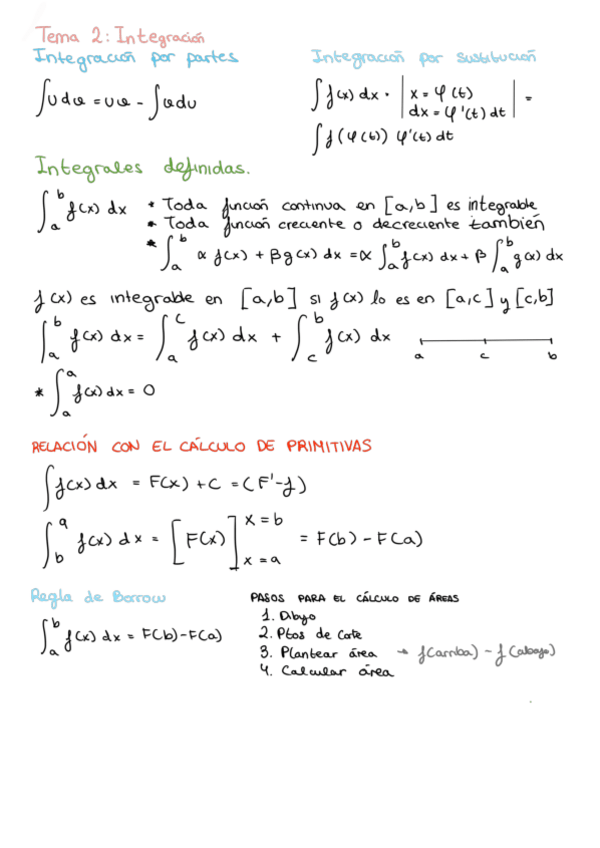 Tema 2: Integración
Integración por partes
∫u dv = uv - ∫v du
Integración por sustitución
∫f(x) dx · | x = φ(t) dx = φ'(t) dt | =
∫f(φ(t)) φ'(t) dt
Integrales definidas.
∫_a^b f(x) dx * Toda función continua en [a,b] es integrable
* Toda función creciente o decreciente también
* ∫_a^b α f(x) + β g(x) dx = α ∫_a^b f(x) dx + β ∫_a^b g(x) dx
f(x) es integrable en [a,b] si f(x) lo es en [a,c] y [c,b]
∫_a^b f(x) dx = ∫_a^c f(x) dx + ∫_c^b f(x) dx
a c b
* ∫_a^a f(x) dx = 0
RELACIÓN CON EL CÁLCULO DE PRIMITIVAS
∫f(x) dx = F(x) + C = (F'-f)
∫_b^a f(x) dx = [F(x)]_{x=a}^{x=b} = F(b) - F(a)
Regla de Borrow
∫_a^b f(x) dx = F(b)-F(a)
PASOS PARA EL CÁLCULO DE ÁREAS
1. Dibujo
2. Ptos de Corte
3. Plantear área → f(arriba) - f(abajo)
4. Calcular área